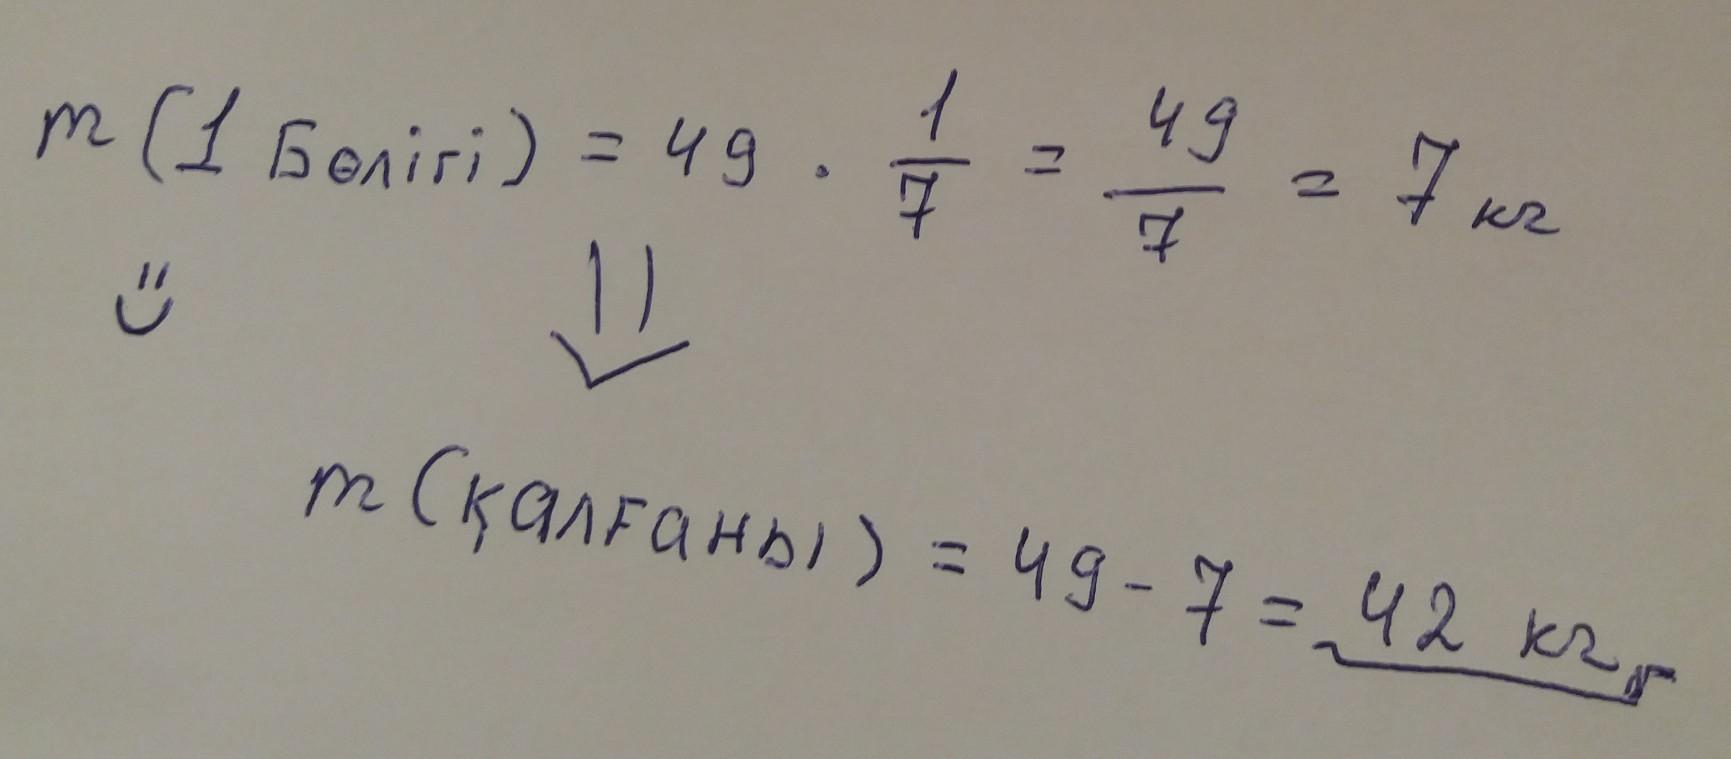 m (1 Бөлігі) = 49 · 1/7 = 49/7 = 7 кг
m (қалғаны) = 49 - 7 = 42 кг